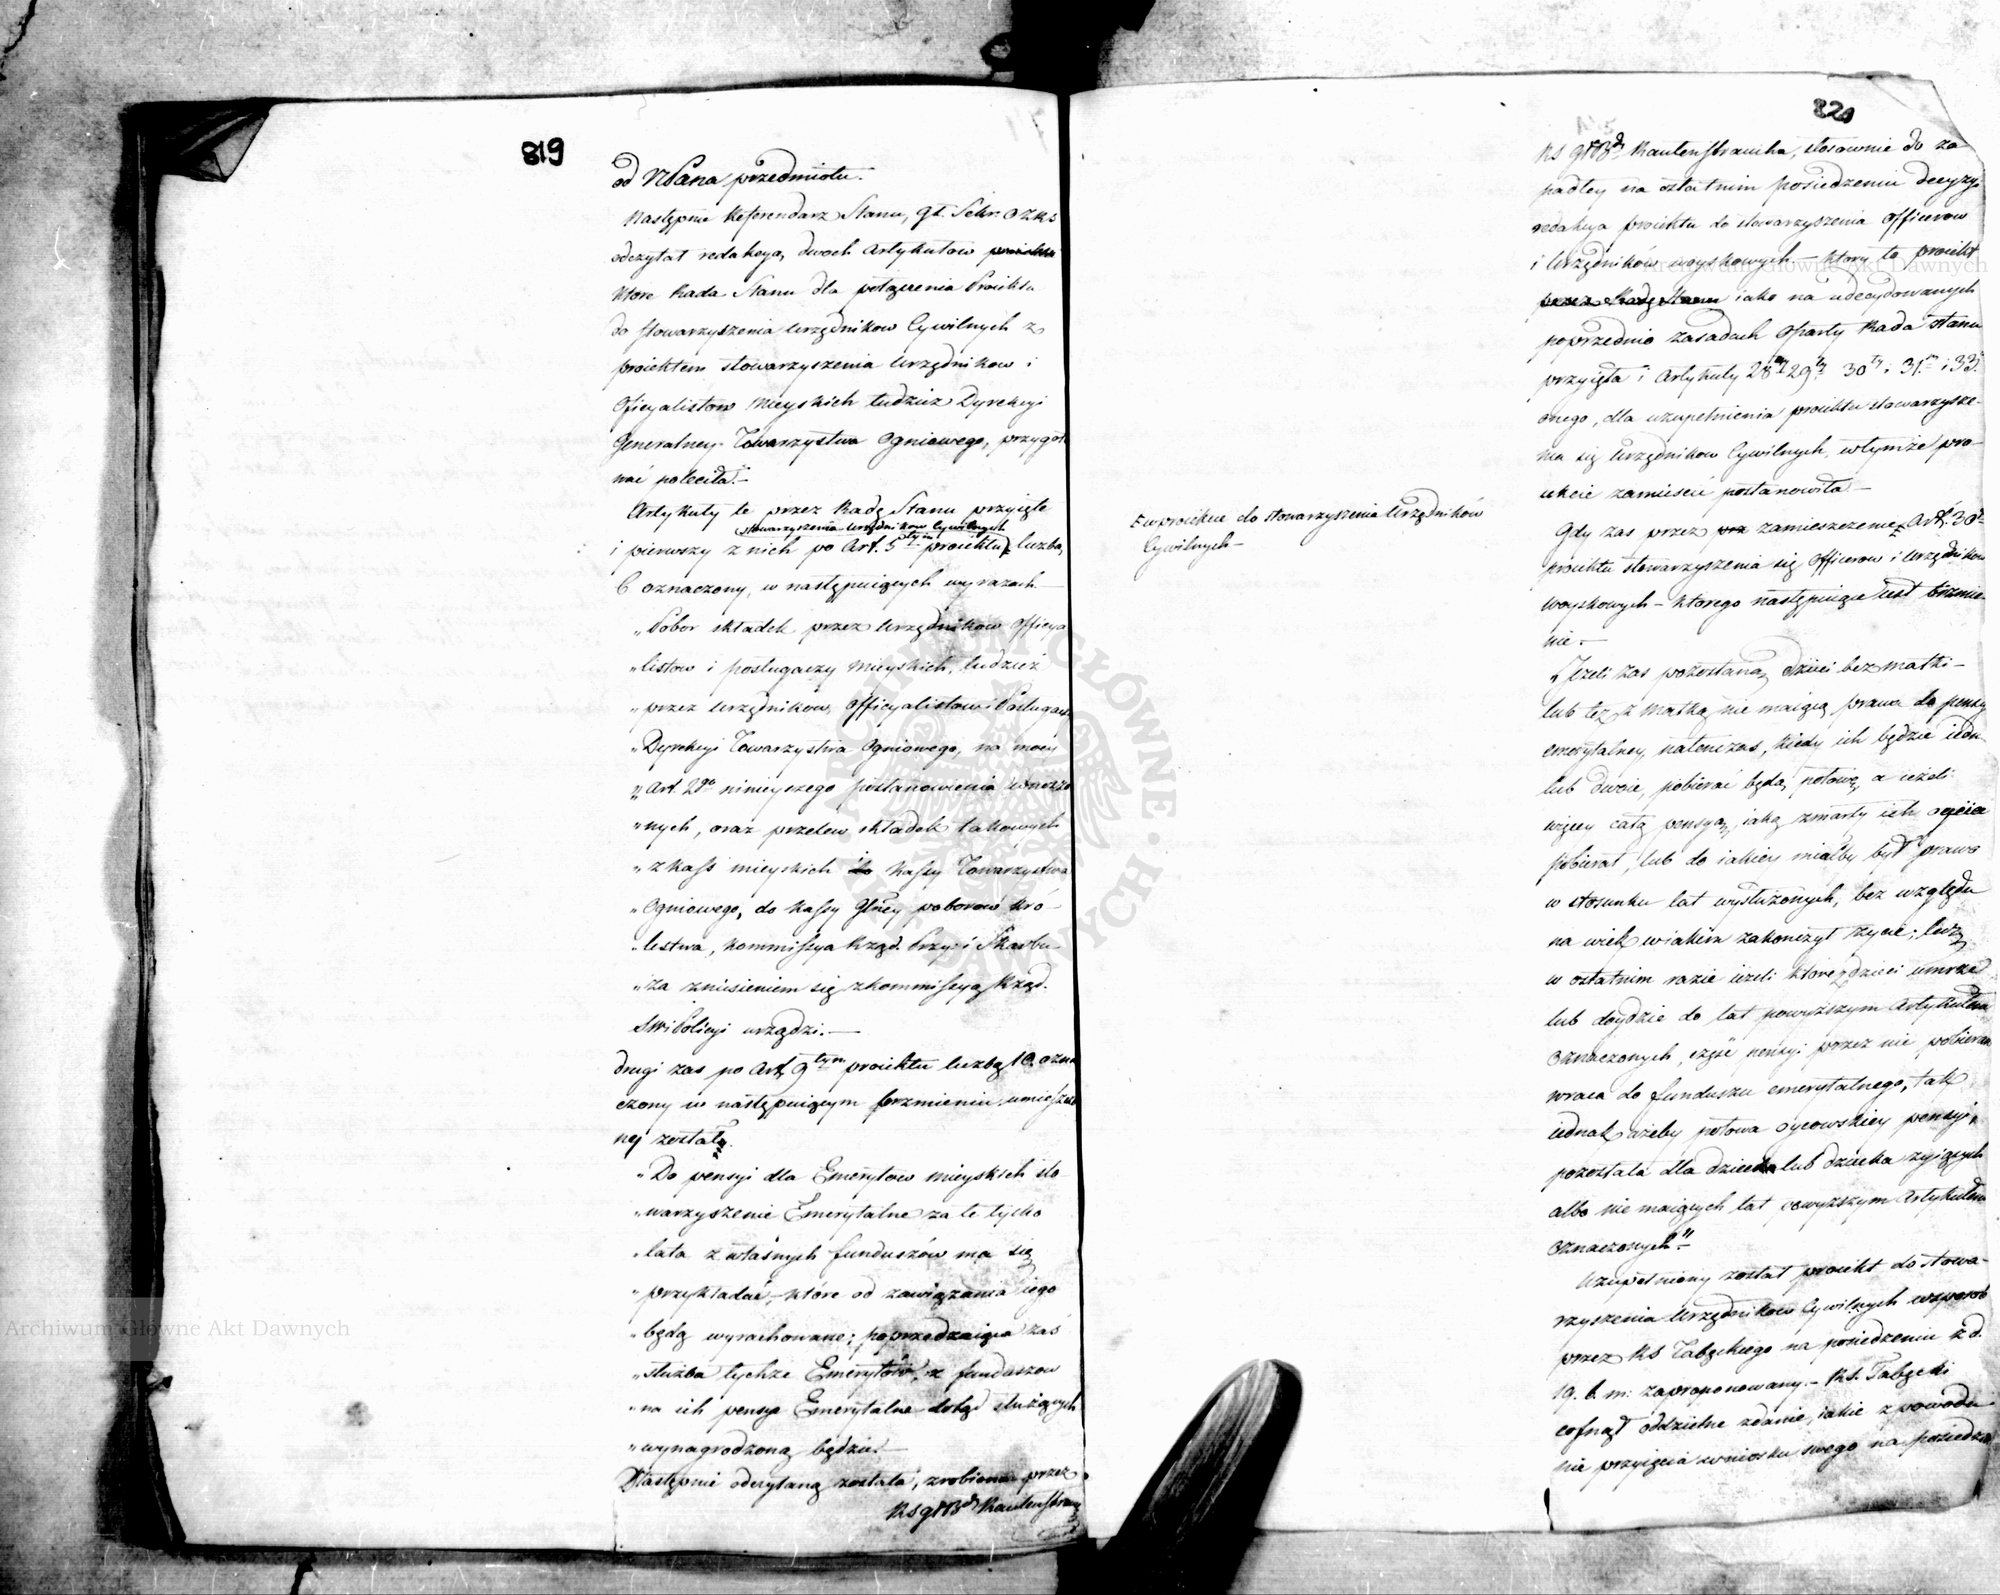 819
od WPana przedmiotu.
Następnie Referendarz Stanu, gł. Sekr.
odczytał redakcyą dwóch Artykułow
które Rada Stanu dla połączenia Proiektu
do stowarzyszenia Urzędnikow Cywilnych z
proiektem stowarzyszenia Urzędnikow i
Oficyalistow Mieyskich tudzież Dyrekcyi
Generalney Towarzystwa Ogniowego, przygoto
wać poleciła.—
Artykuły te przez Radę Stanu przyięte
stowarzyszenia Urzędnikow Cywilnych
i pierwszy z nich po Art. 5tym proiektu liczbą
6 oznaczony, w następuiących wyrazach —
„Pobor składek przez Urzędnikow Officya
„listow i posługaczy Mieyskich, tudzież
„przez Urzędnikow, Officyalistow i Posługacz
„Dyrekcyi Towarzystwa Ogniowego, na mocy
„Art. 2go ninieyszego postanowienia wnoszo
„nych, oraz przelew składek takowych
„z kass mieyskich i kassy Towarzystwa
„Ogniowego, do kassy Głney poborow Kró
„lestwa, Kommissya Rząd. Przy: i Skarbu
„za zniesieniem się z Kommissyą Rząd.
SW i Policyi urządzi.—
drugi zas po Art. 9tym proiektu liczbą 10. ozna
czony w następuiącym brzmieniu umieszczo
ny został.
„Do pensyi dla Emerytow mieyskich sto
„warzyszenie Emerytalne za te tylko
„lata z własnych funduszów ma się
„przykładać, które od zawiązania iego
„będą wyrachowane; poprzedzaiąca zaś
„służba tychże Emerytów, z funduszow
„na ich pensye Emerytalne dotąd służących
„wynagrodzoną będzie.—
Następnie odczytaną została, zrobiona przez
RS głBd Rautenstrau
820
RS głBd Rautenstraucha, stosownie do za
padłey na ostatnim posiedzeniu decyzyi
redakcya proiektu do stowarzyszenia Officerow
i Urzędników woyskowych — który to proiekt
przez Radę Stanu iako na udecydowanych
poprzednio zasadach oparty Rada Stanu
przyięła i Artykuły 28my 29ty 30ty i 31. i 33.
onego, dla uzupełnienia proiektu stowarzysze-
nia się Urzędnikow Cywilnych, w tymże pro-
iekcie zamieścić postanowiła.—
w proiekcie do stowarzyszenia Urzędników
Cywilnych —
Gdy zas przez zamieszczenie Art. 30
proiektu stowarzyszenia się Officerow i Urzędnikow
woyskowych — którego następuiące iest brzmie-
nie.—
„Jeżeli zas pozostaną dzieci bez matki —
lub też z Matką nie maiącą prawa do pensyi
emerytalney, natenczas, kiedy ich będzie iedno
lub dwoie, pobierać będą połowę, a ieżeli
więcey całą pensyą, iaką zmarły ich oyciec
pobierał, lub do iakiey miałby był prawo
w stosunku lat wysłużonych, bez względu
na wiek w iakim zakończył życie; lecz
w ostatnim razie ieżeli które z dzieci umrze
lub doydzie do lat powyższym Artykułem
oznaczonych, część pensyi przez nie pobierana
wraca do funduszu emerytalnego, tak
iednak ażeby połowa oycowskiey pensyi,
pozostała dla dziecka lub dziecka żyiących
albo nie maiących lat powyższym Artykułem
oznaczonych."—
Uzupełniony został proiekt do stowa-
rzyszenia Urzędnikow Cywilnych w sposob
przez RS Tabęckiego na posiedzeniu z d.
19. b. m: zaproponowany.— RS. Tabęcki
cofnął oddzielne zdanie, iakie z powodu
nie przyięcia wniosku swego na posiedze